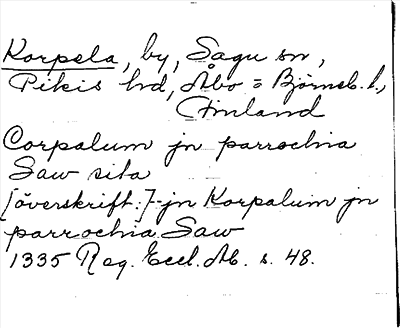 Korpela, by, Sagu sn,
Pikis hd, Åbo = Björneb. l.,
Finland
Corpalum jn parrochia
Saw sita
[överskrift:] jn Korpalum jn
parrochia Saw
1335 Reg. Eccl. Ab. s. 48.